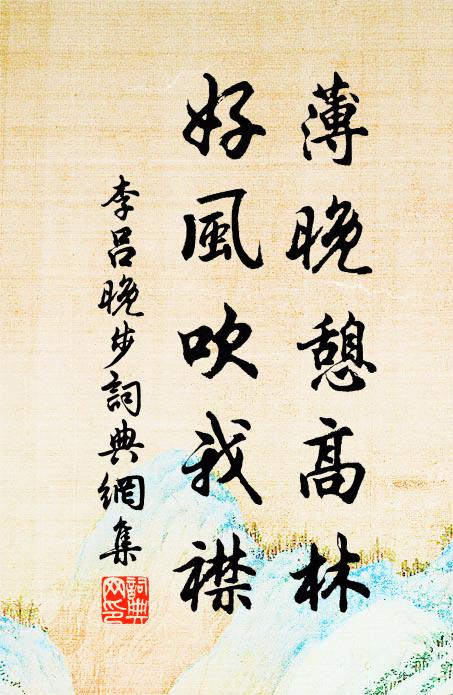 薄晚憩高林
好風吹我襟
李呂晚步詞典網集
詞典网印